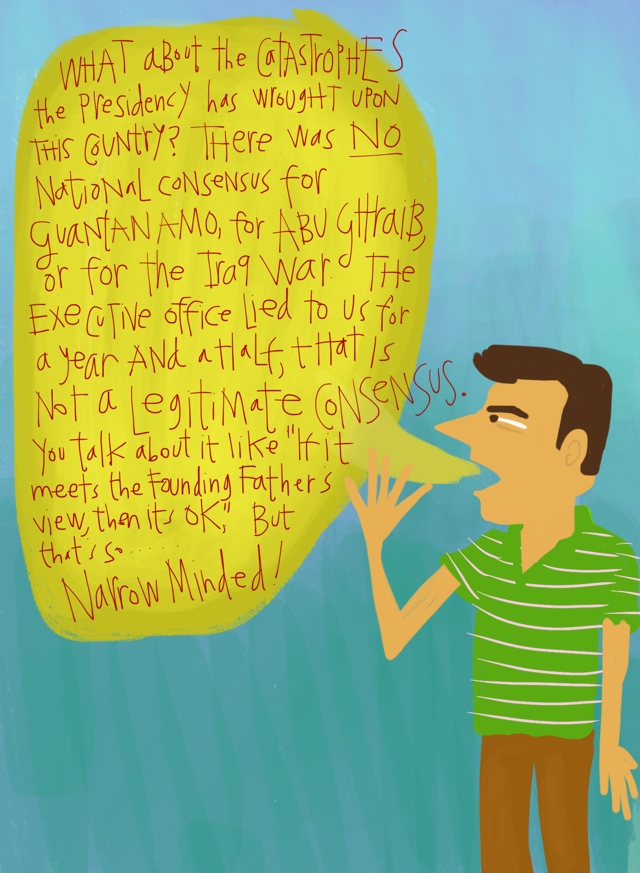 WHAT about the CATASTROPHES
the Presidency has wrought upon
this country? There was NO
National consensus for
Guantanamo, for Abu Ghraib,
or for the Iraq War. The
Executive office lied to us for
a year and a half, that is
Not a Legitimate Consensus.
You talk about it like "If it
meets the Founding Father's
view, then its OK," But
that's so......
Narrow Minded!